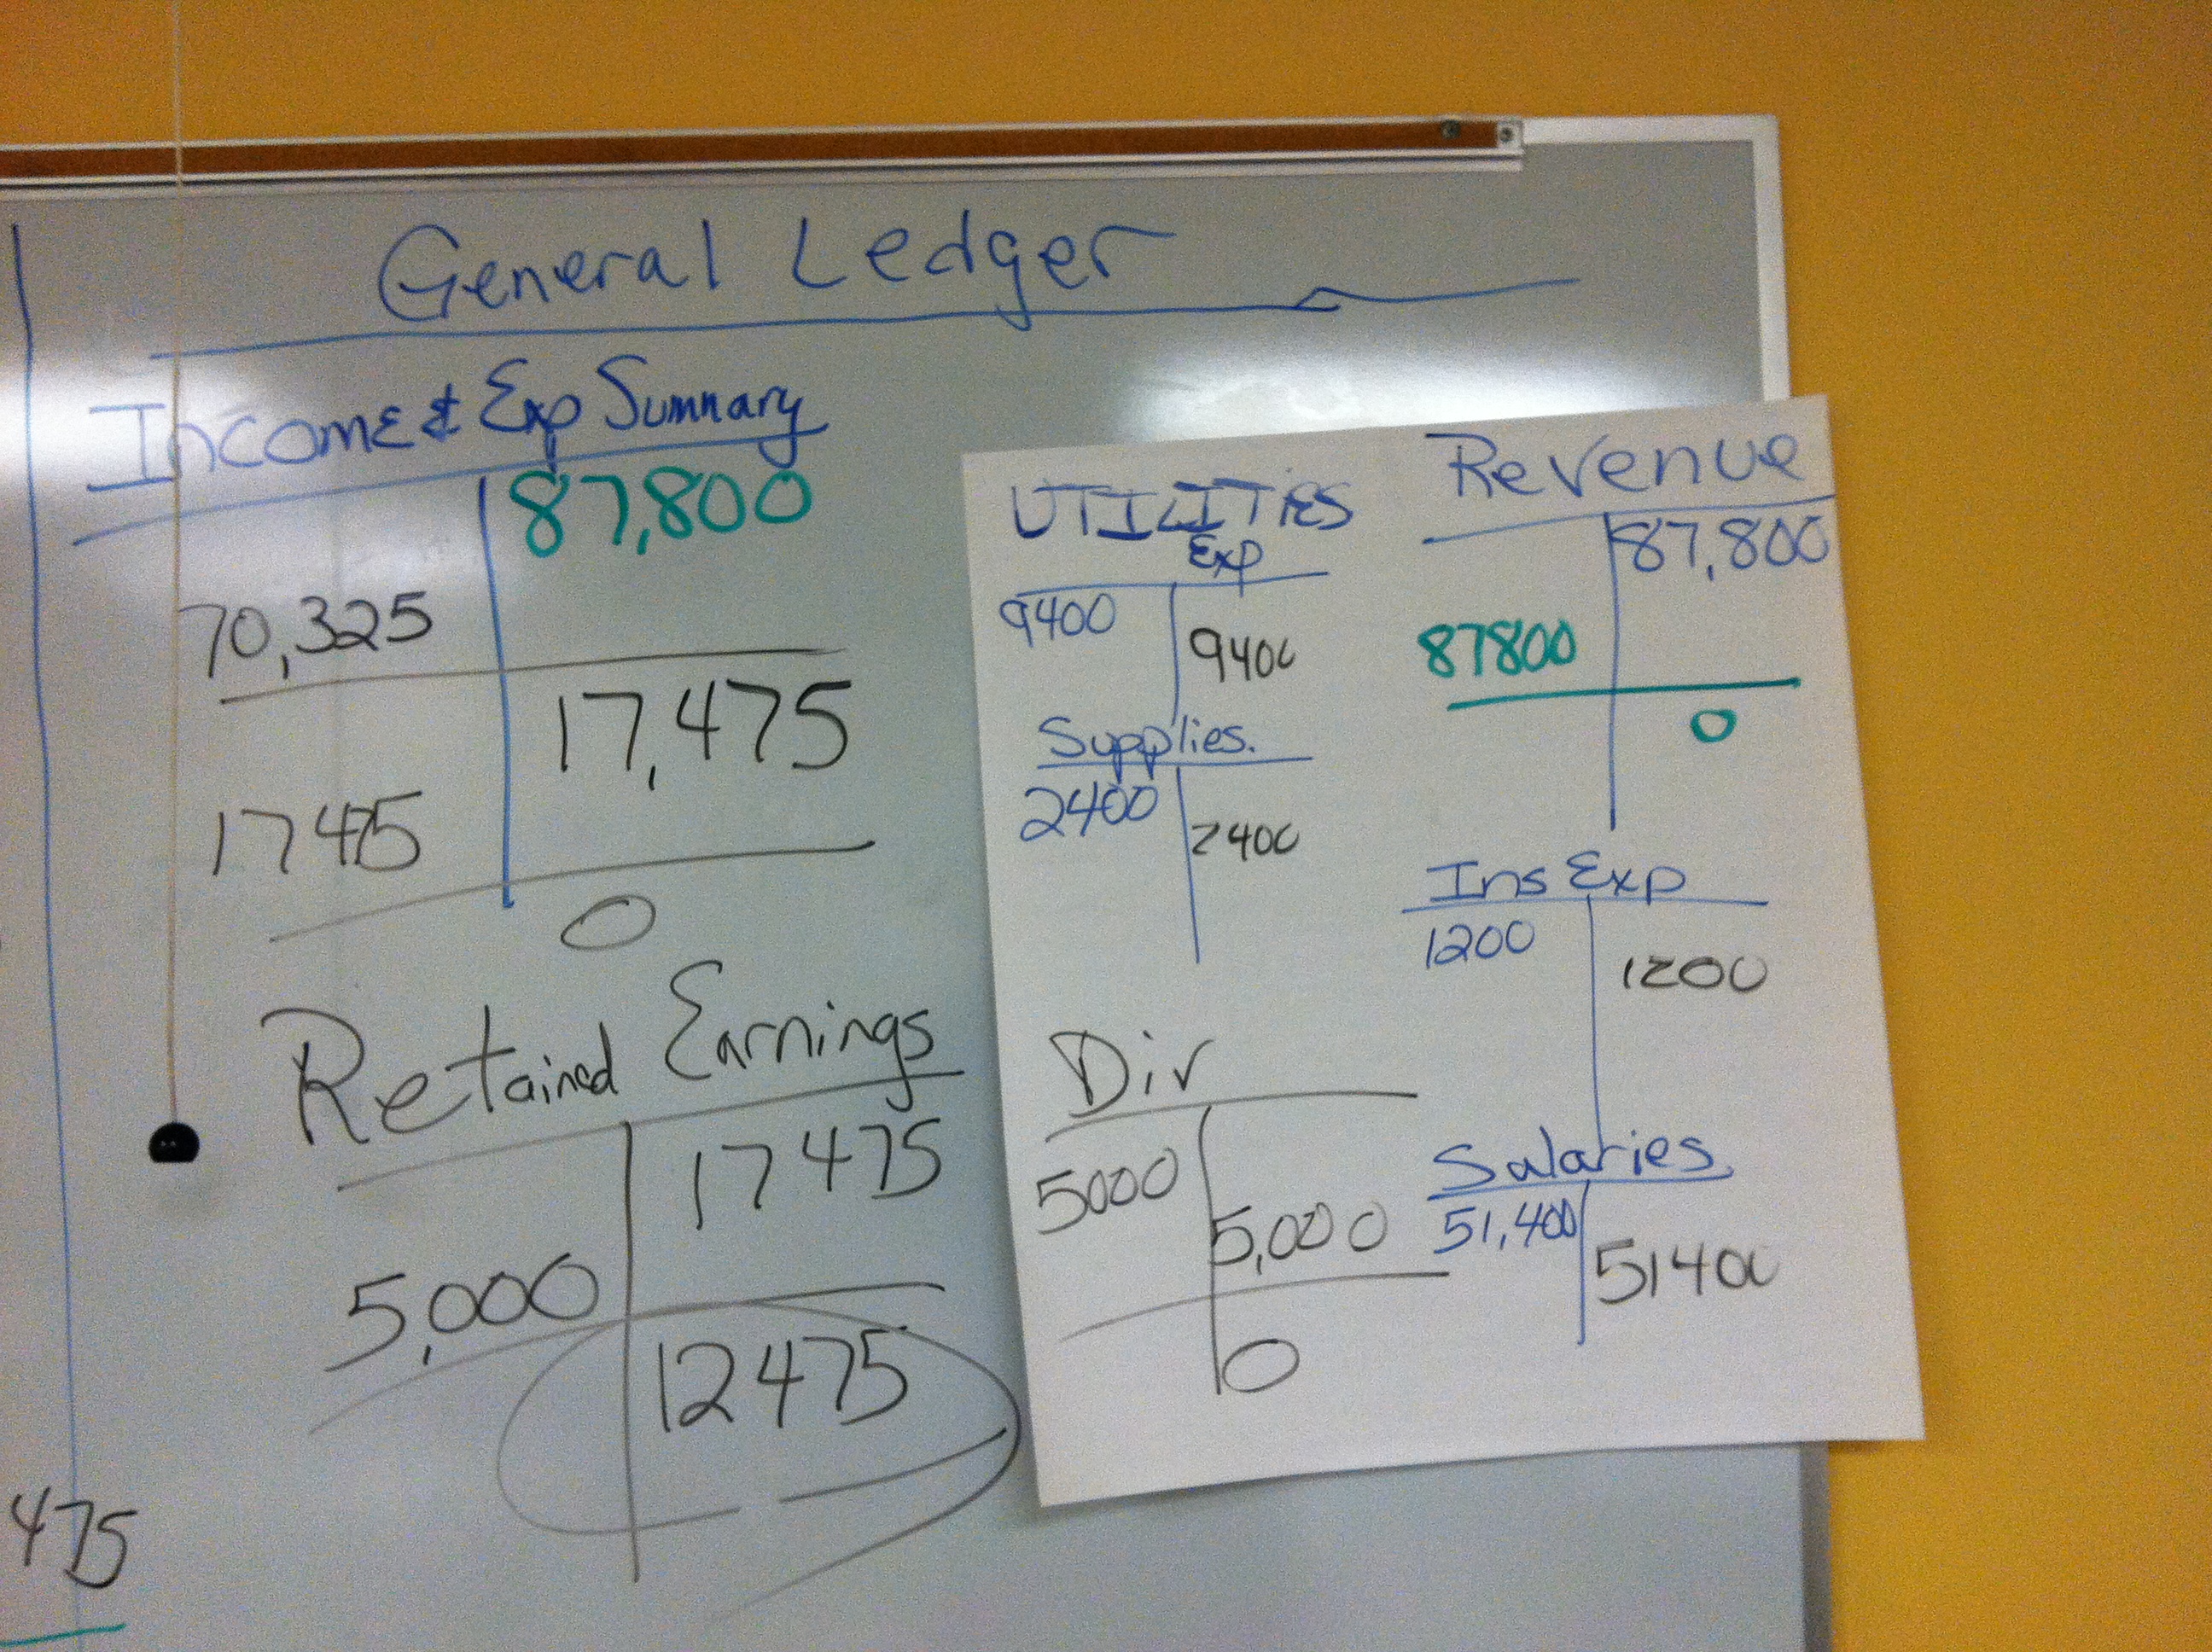 General Ledger
Income & Exp Summary
87,800
70,325
17,475
17475
0
Retained Earnings
17475
5,000
12475
475
UTILITIES
Exp
9400
9400
Supplies.
2400
2400
Div
5000
5,000
0
Revenue
87,800
87800
0
Ins Exp
1200
1200
Salaries
51,400
51400